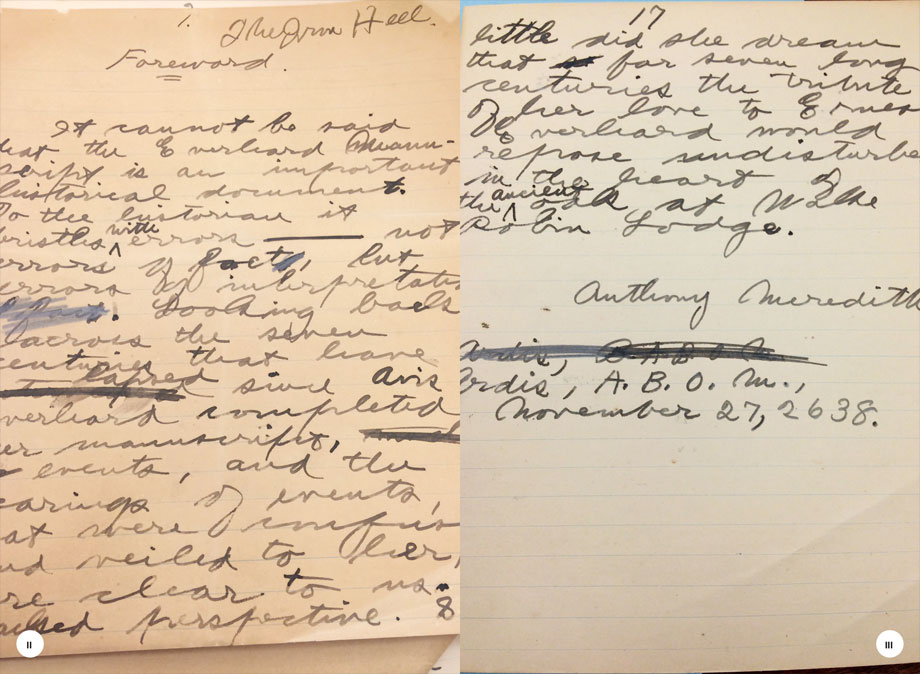 ?
The Iron Heel.
Foreword.
It cannot be said
hat the Everhard Manu-
script is an important
historical document.
To the historian it
bristles with errors not
errors of fact, but
errors of interpretatio
. Looking back
across the seven
centuries that have
lapsed since Avis
verhard completed
er manuscript,
events, and the
earings of events,
at were confus
nd veiled to her,
re clear to us.
perspective. 8
II
17
little did she dream
that for seven long
centuries the tribute
of her love to Ernes
Everhard would
repose undisturbe
in the heart of
the ancient oak at Wake
Robin Lodge.
Anthony Meredith
Ardis,
Ardis, A. B. O. M.,
November 27, 2638.
III